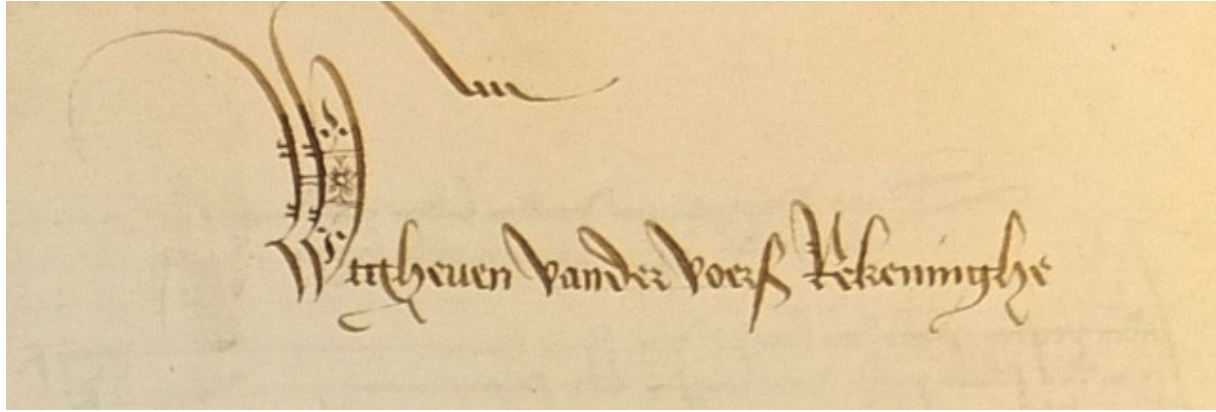 Wtgheven vander voers Rekeninghe